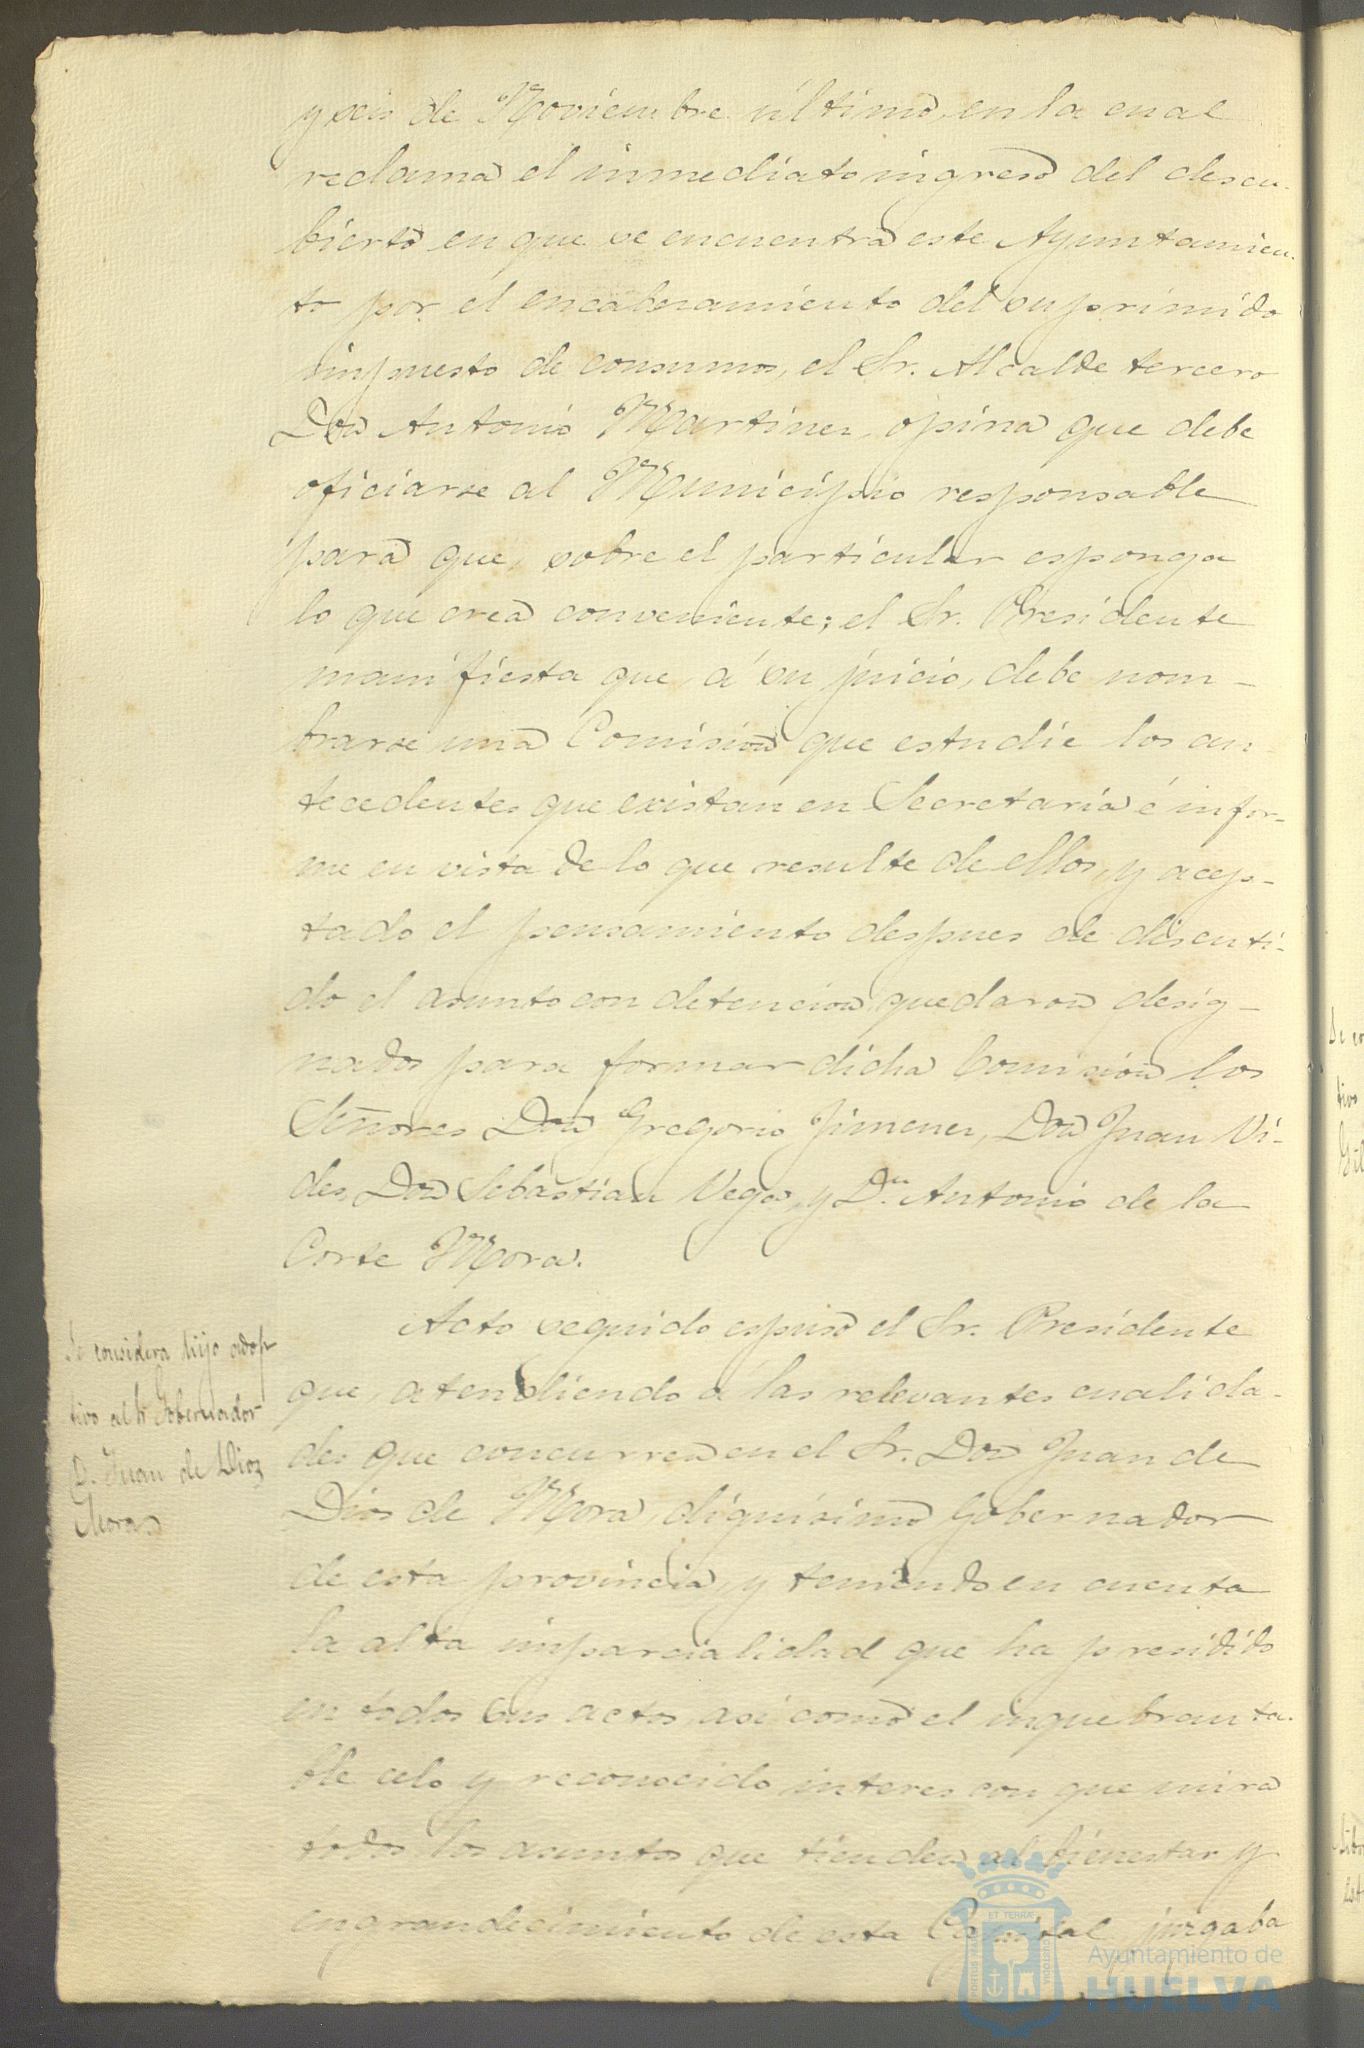 y seis de Noviembre último, en la cual
reclama el inmediato ingreso del descu-
bierto en que se encuentra este Ayuntamien-
to por el encabezamiento del suprimido
impuesto de consumos, el Sr. Alcalde tercero
Don Antonio Martinez, opina que debe
oficiarse al Municipio responsable
para que, sobre el particular esponga
lo que crea conveniente; el Sr. Presidente
manifiesta que, á su juicio, debe nom-
brarse una Comision que estudie los an-
tecedentes que existan en Secretaría é infor-
me en vista de lo que resulte de ellos, y acep-
tado el pensamiento despues de discuti-
do el asunto con detencion, quedaron desig-
nados para formar dicha Comision los
Señores Don Gregorio Jimenez, Don Juan Vi-
des, Don Sebastian Vegas, y Dn. Antonio de la
Corte Mora.
Se considera hijo adop-
tivo al Sr Gobernador
D. Juan de Dios
Mora
Acto seguido espuso el Sr. Presidente
que, atendiendo á las relevantes cualida-
des que concurren en el Sr. Don Juan de
Dios de Mora, dignísimo Gobernador
de esta provincia, y teniendo en cuenta
la alta imparcialidad que ha presidido
en todos sus actos, asi como el inquebranta-
ble celo y reconocido interes con que mira
todos los asuntos que tienden al bienestar y
engrandecimiento de esta Capital, juzgaba
Ayuntamiento de
HUELVA